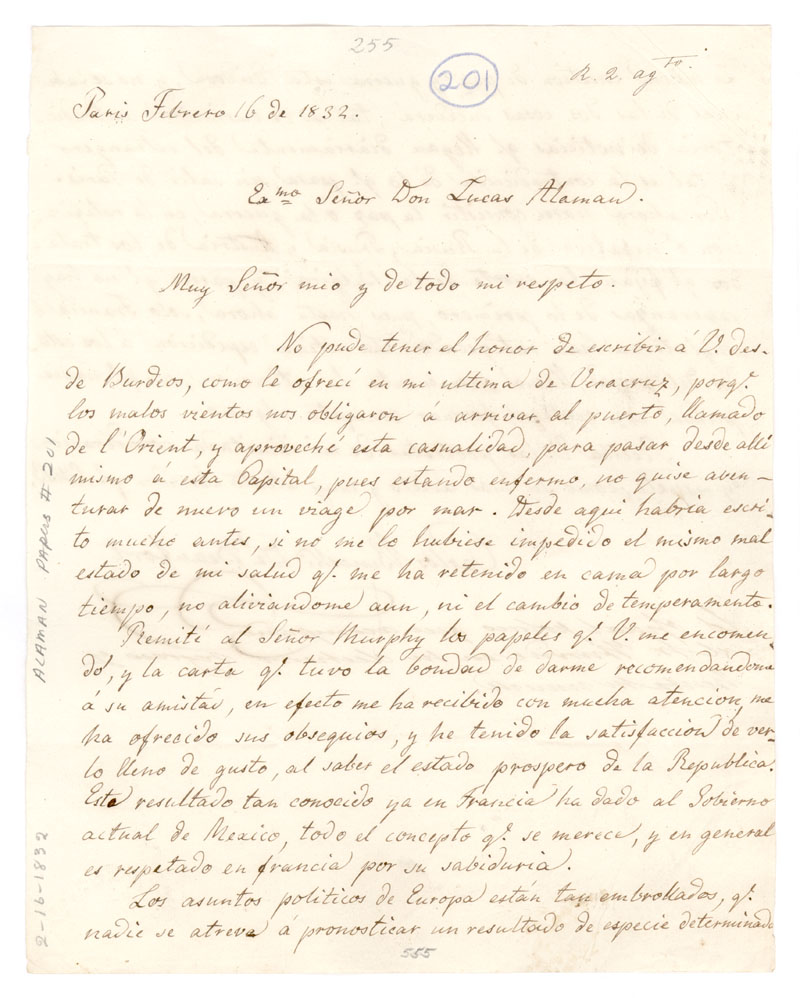 255
201
R. 2. ag.to
Paris Febrero 16 de 1832.
Exmo Señor Don Lucas Alaman.
Muy Señor mio y de todo mi respeto.
No pude tener el honor de escribir á V. des-
de Burdeos, como le ofrecí en mi ultima de Veracruz, porq.e
los malos vientos nos obligaron á arrivar al puerto, llamado
de l'Orient, y aproveché esta casualidad, para pasar desde alli
mismo á esta Capital, pues estando enfermo, no quise aven-
turar de nuevo un viage por mar. Desde aqui habria escri-
to mucho antes, si no me lo hubiese impedido el mismo mal
estado de mi salud q.e me ha retenido en cama por largo
tiempo, no aliviandome aun, ni el cambio de temperamento.
Remití al Señor Murphy los papeles q.e V. me encomen-
dó, y la carta q.e tuvo la bondad de darme recomendandome
á su amistad, en efecto me ha recibido con mucha atencion, me
ha ofrecido sus obsequios, y he tenido la satisfaccion de ver-
lo lleno de gusto, al saber el estado prospero de la Republica.
Este resultado tan conocido ya en Francia ha dado al Gobierno
actual de Mexico, todo el concepto q.e se merece, y en general
es respetado en francia por su sabiduria.
Los asuntos politicos de Europa están tan embrollados, q.e
nadie se atreve á pronosticar un resultado de especie determinado
555
ALAMAN PAPERS # 201
2-16-1832